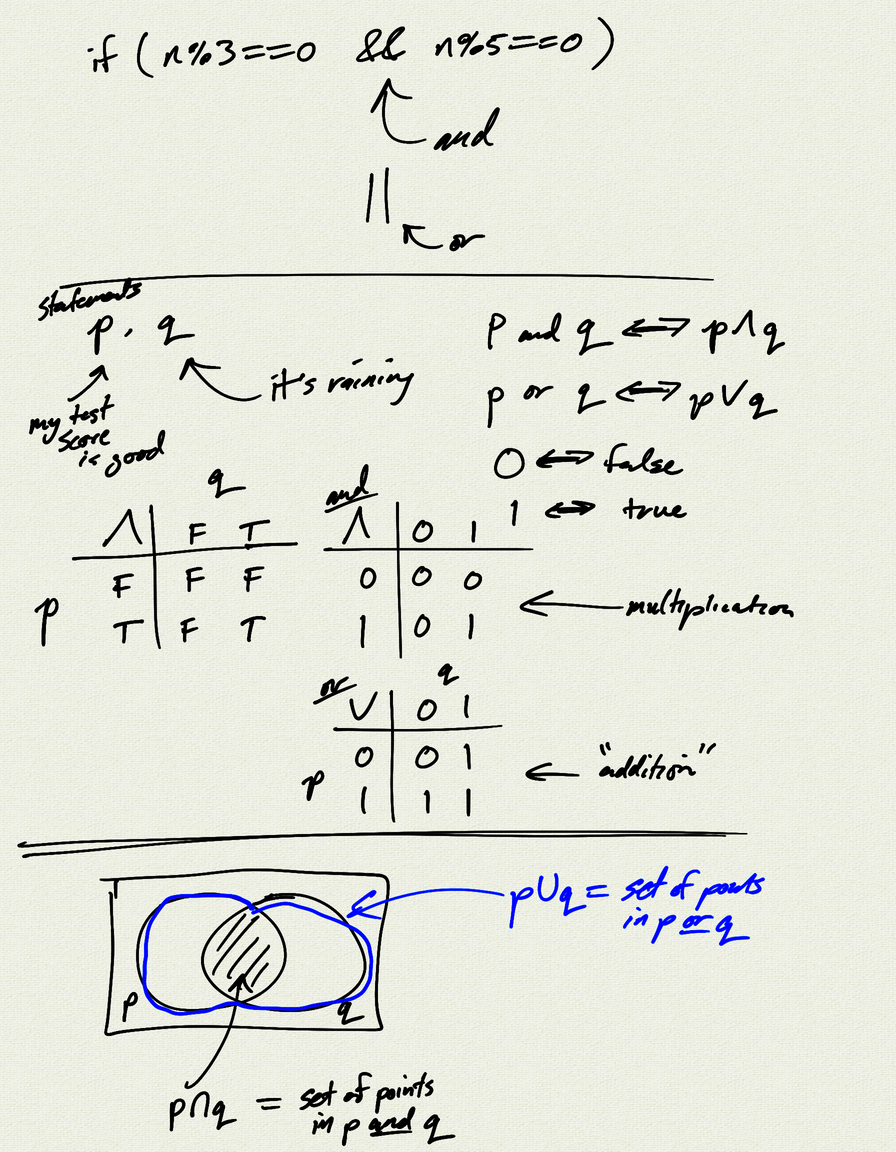 if (n%3==0 && n%5==0)
and
||
or
statements
p, q
it's raining
my test
score
is good
p and q ⟺ p∧q
p or q ⟺ p∨q
0 ⟺ false
1 ⟺ true
q
∧ F T
p
F F F
T F T
and
∧ 0 1
0 0 0
1 0 1
multiplication
or
q
∨ 0 1
0 0 1
p
1 1 1
"addition"
p∪q = set of points
in p or q
p q
p∩q = set of points
in p and q